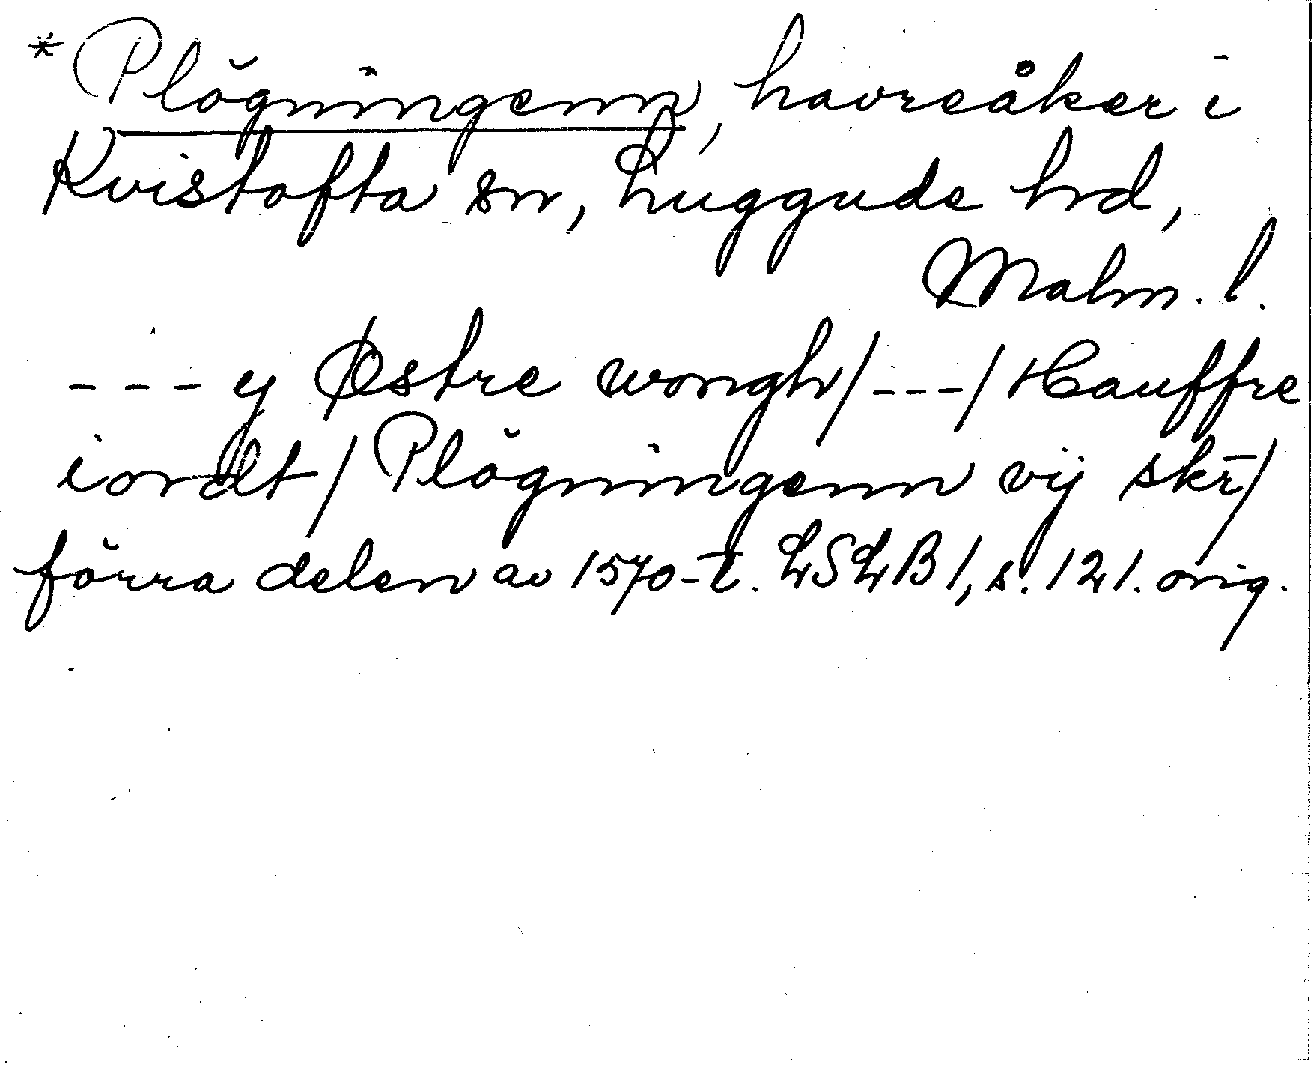 *Plögningenn, havreåker i
Kvistofta sn, Luggude hd,
Malm. l.
--- y Østre wongh/---/Hauffre
iordt/Plögningenn vij skr̄/
förra delen av 1570-t. LSLB 1, s. 121. orig.